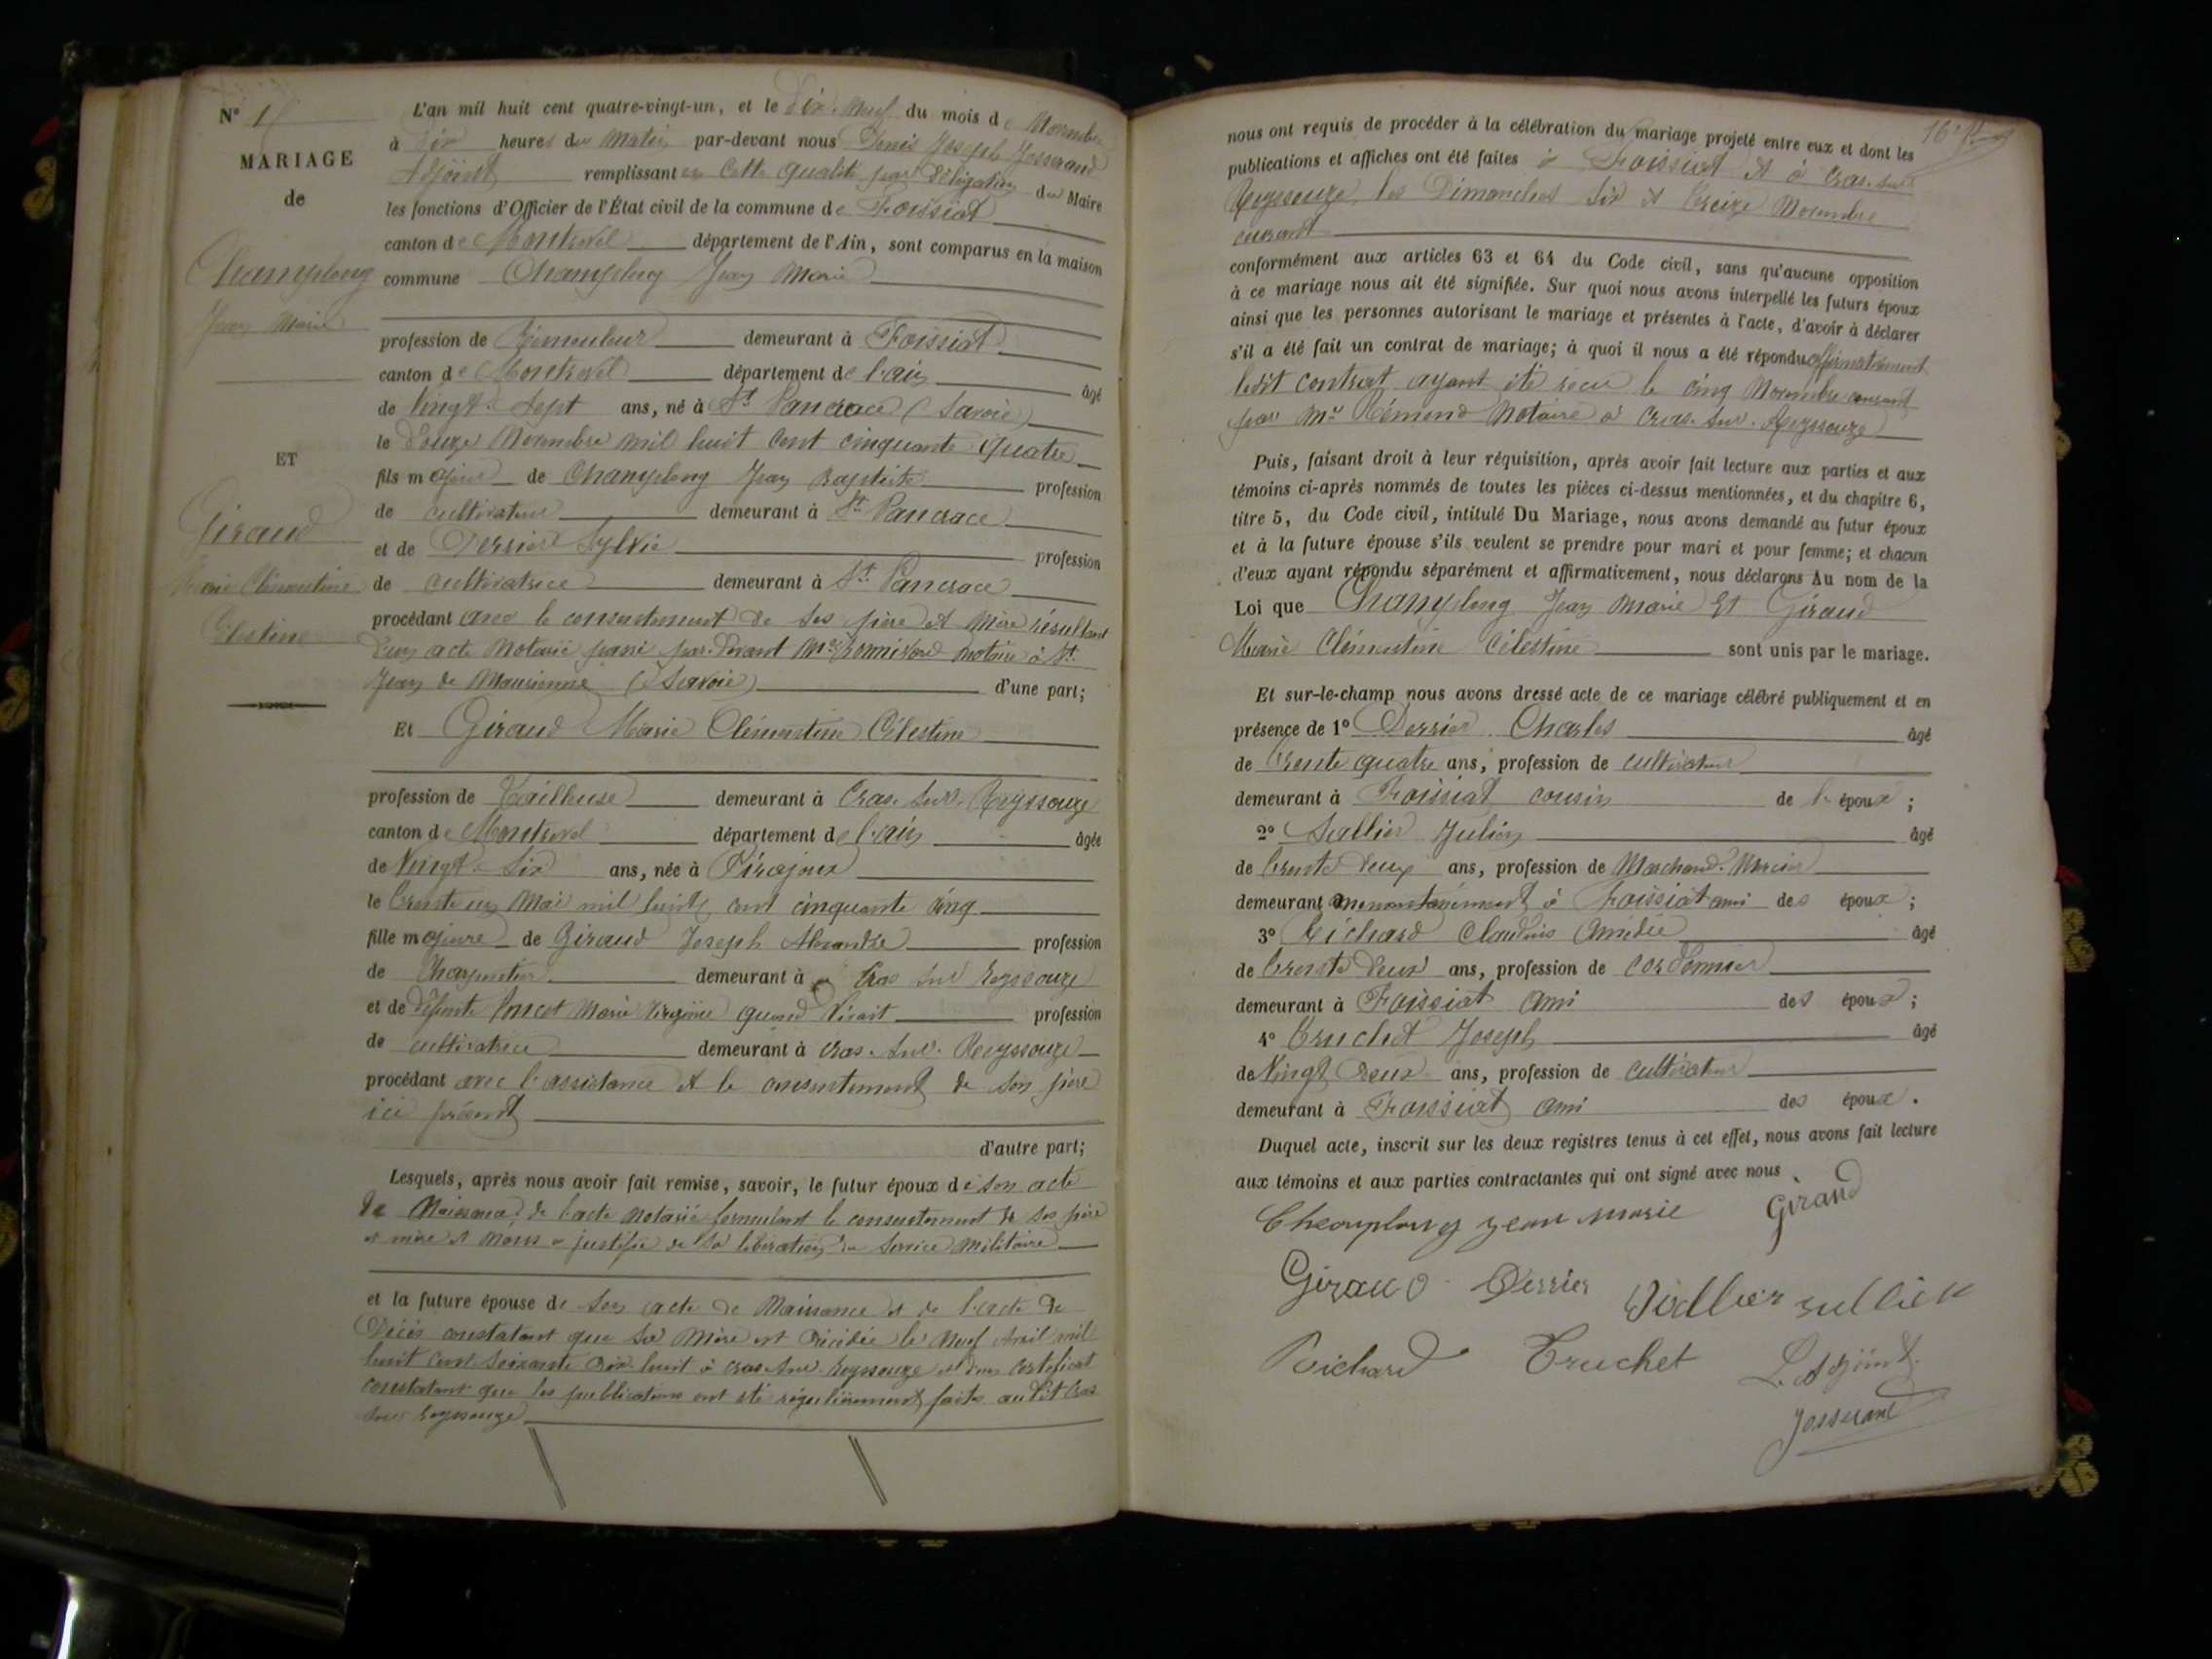 N° 15
MARIAGE
de
Champlong
Jean Marie
ET
Giraud
Marie Clémentine
Célestine
L'an mil huit cent quatre-vingt-un, et le Dix-Neuf du mois de Novembre
à Dix heures du Matin par-devant nous Denis Joseph Josserand
Adjoint remplissant en Cette qualité par délégation du Maire
les fonctions d'Officier de l'État civil de la commune de Foissiat
canton de Montrevel département de l'Ain, sont comparus en la maison
commune Champlong Jean Marie
profession de Rémouleur demeurant à Foissiat
canton de Montrevel département de l'ain âgé
de Vingt-Sept ans, né à St Pancrace (Savoie)
le Douze Novembre mil huit cent cinquante Quatre
fils majeur de Champlong Jean Baptiste profession
de cultivateur demeurant à St Pancrace
et de Derrier Sylvie profession
de cultivatrice demeurant à St Pancrace
procédant avec le consentement de ses père et Mère résultant
d'un acte Notarié passé par-devant Me Bonnivard notaire à St
Jean de Maurienne (Savoie) d'une part;
Et Giraud Marie Clémentine Célestine
profession de Tailleuse demeurant à Cras-sur-Reyssouze
canton de Montrevel département de l'ain âgée
de Vingt-Six ans, née à Pirajoux
le trente un Mai mil huit cent cinquante cinq
fille majeure de Giraud Joseph Alexandre profession
de Charpentier demeurant à Cras sur Reyssouze
et de défunte Poncet Marie Virginie quand vivait profession
de cultivatrice demeurant à Cras-sur-Reyssouze
procédant avec l'assistance et le consentement de son père
ici présent
d'autre part;
Lesquels, après nous avoir fait remise, savoir, le futur époux de son acte
de Naissance, de l'acte notarié formulant le consentement de ses père
et mère et nous a justifié de sa libération du service militaire
et la future épouse de son acte de Naissance et de l'acte de
Décès constatant que sa Mère est décédée le Neuf Avril mil
huit cent soixante Dix huit à Cras-sur-Reyssouze et d'un certificat
constatant que les publications ont été régulièrement faites audit Cras
sur Reyssouze
16
nous ont requis de procéder à la célébration du mariage projeté entre eux et dont les
publications et affiches ont été faites à Foissiat et à Cras-sur
Reyssouze les Dimanches Six et treize Novembre
courant
conformément aux articles 63 et 64 du Code civil, sans qu'aucune opposition
à ce mariage nous ait été signifiée. Sur quoi nous avons interpellé les futurs époux
ainsi que les personnes autorisant le mariage et présentes à l'acte, d'avoir à déclarer
s'il a été fait un contrat de mariage; à quoi il nous a été répondu affirmativement
ledit contrat ayant été reçu le cinq Novembre courant
par Me Rémond Notaire à Cras-sur-Reyssouze
Puis, faisant droit à leur réquisition, après avoir fait lecture aux parties et aux
témoins ci-après nommés de toutes les pièces ci-dessus mentionnées, et du chapitre 6,
titre 5, du Code civil, intitulé Du Mariage, nous avons demandé au futur époux
et à la future épouse s'ils veulent se prendre pour mari et pour femme; et chacun
d'eux ayant répondu séparément et affirmativement, nous déclarons Au nom de la
Loi que Champlong Jean Marie Et Giraud
Marie Clémentine Célestine sont unis par le mariage.
Et sur-le-champ nous avons dressé acte de ce mariage célébré publiquement et en
présence de 1° Derrier Charles âgé
de Trente quatre ans, profession de cultivateur
demeurant à Foissiat cousin de l' époux;
2° Sallier Julien âgé
de trente deux ans, profession de Marchand-Mercier
demeurant momentanément à Foissiat ami des époux;
3° Richard Claudius Amédée âgé
de trente deux ans, profession de cordonnier
demeurant à Foissiat ami des époux;
4° Truchet Joseph âgé
de Vingt deux ans, profession de cultivateur
demeurant à Foissiat ami des époux.
Duquel acte, inscrit sur les deux registres tenus à cet effet, nous avons fait lecture
aux témoins et aux parties contractantes qui ont signé avec nous.
Champlong jean marie Giraud
Giraud Derrier Sallier jullien
Richard Truchet L'Adjoint
Josserand